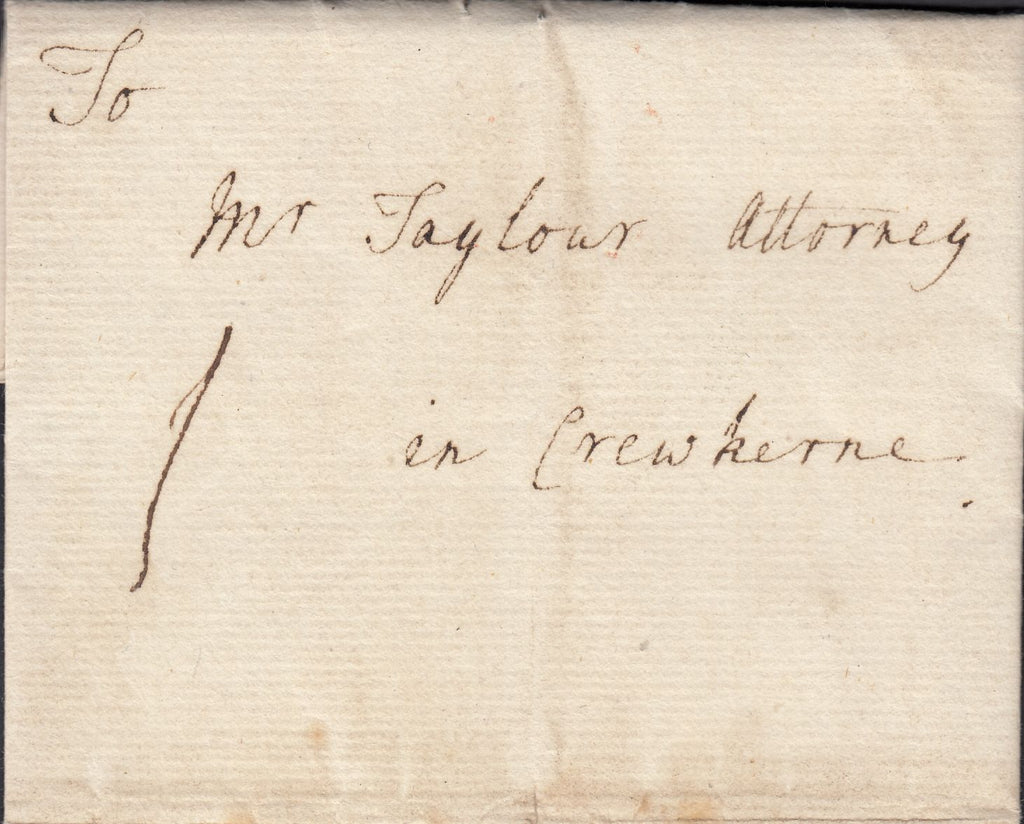 To
Mr Taylour Attorney
1
in Crewkerne.